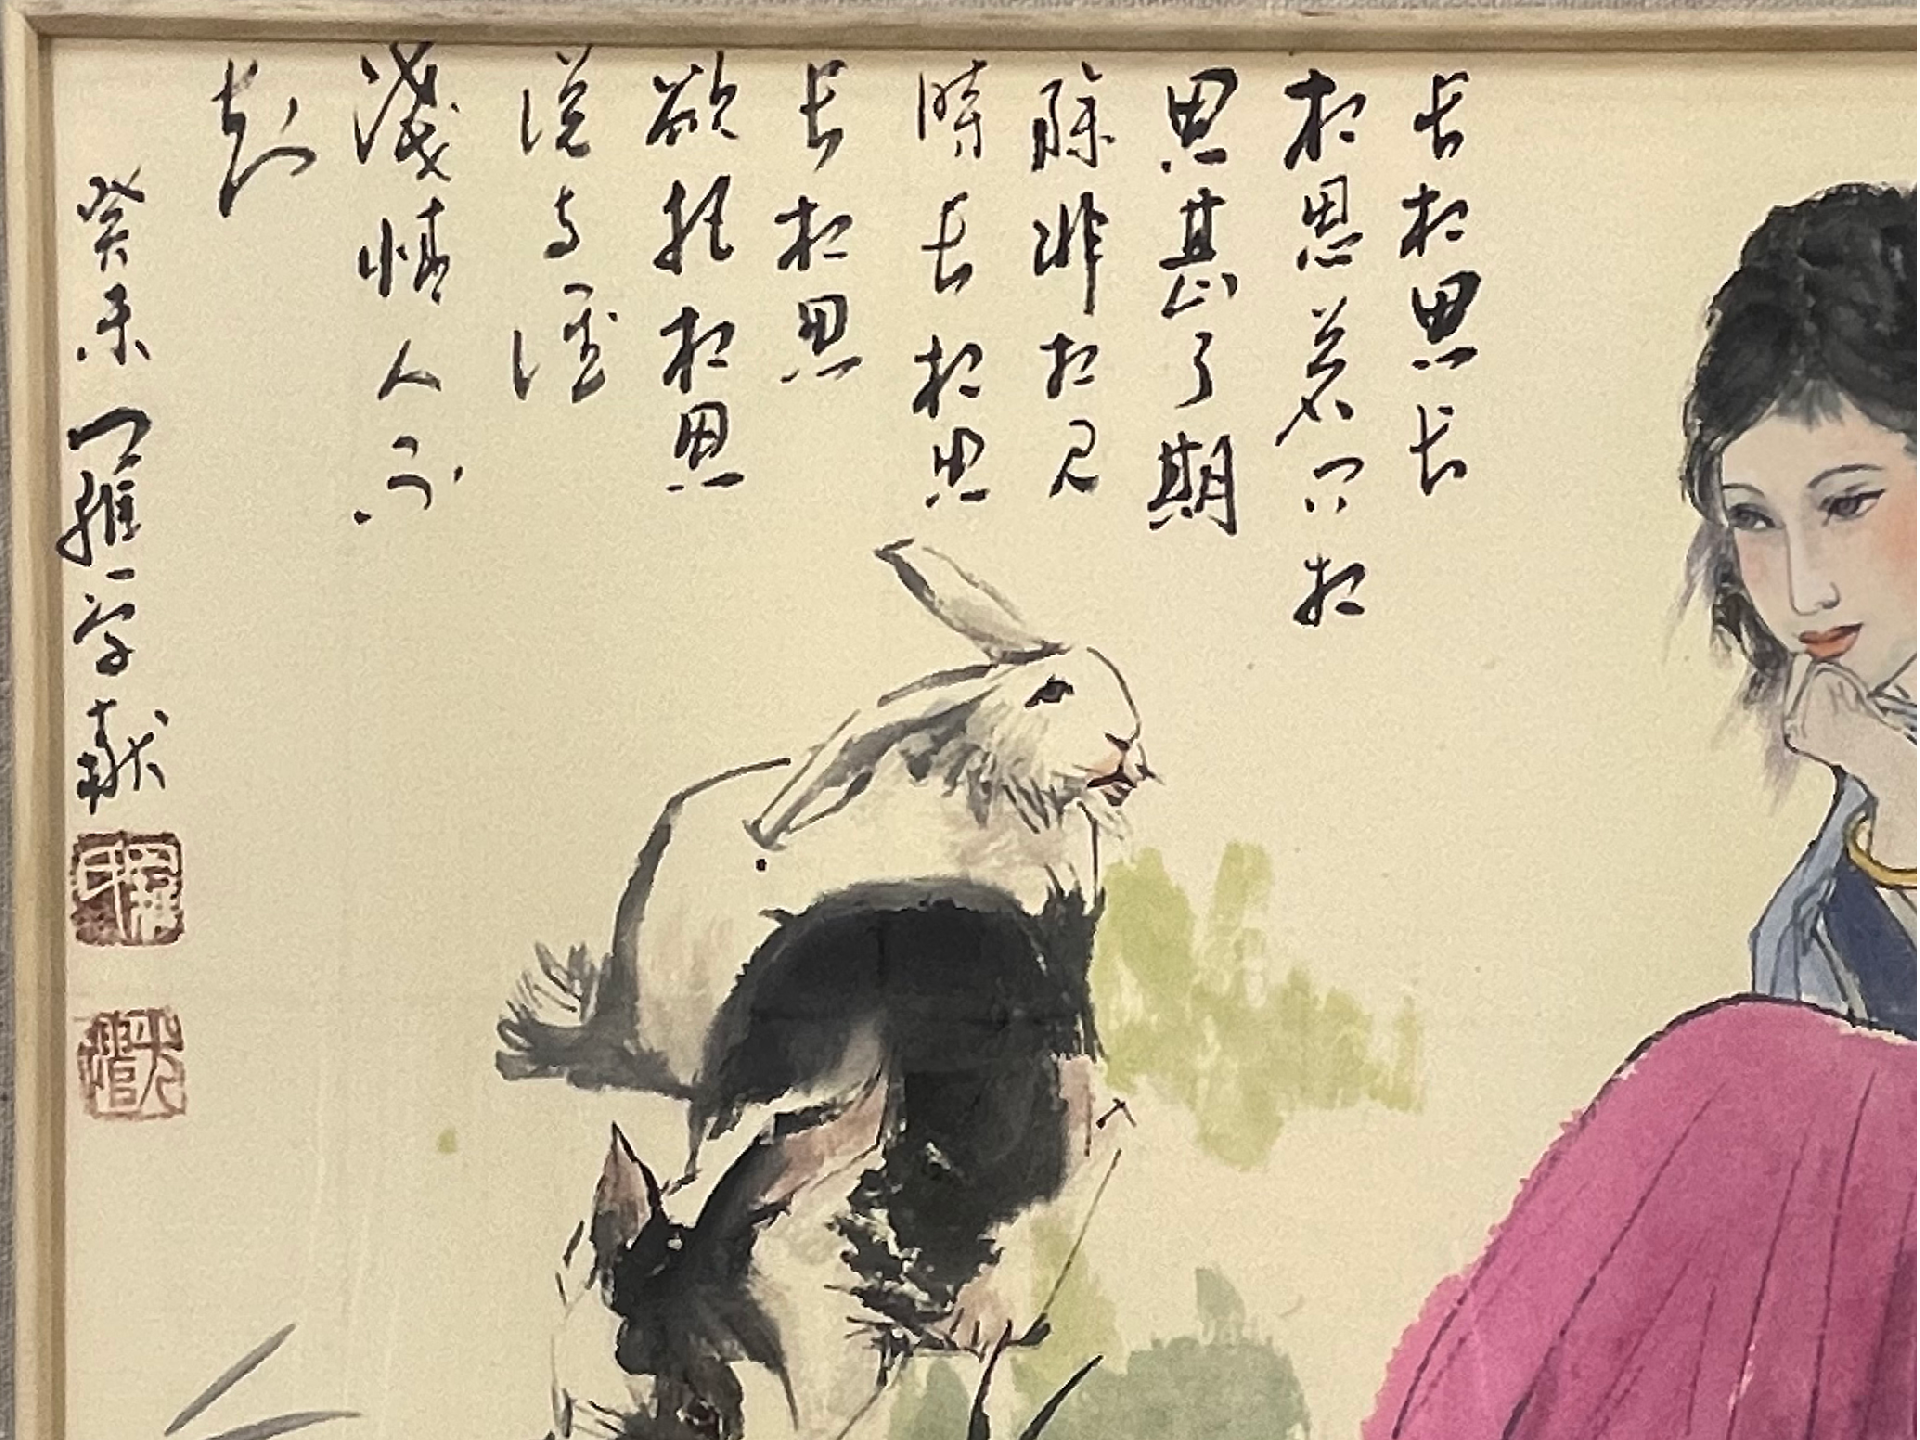 长相思长
相思若问相
思甚了期
除非相见
时长相思
长相思
欲把相思
说与谁
浅情人不
知
癸未 罗维一字献